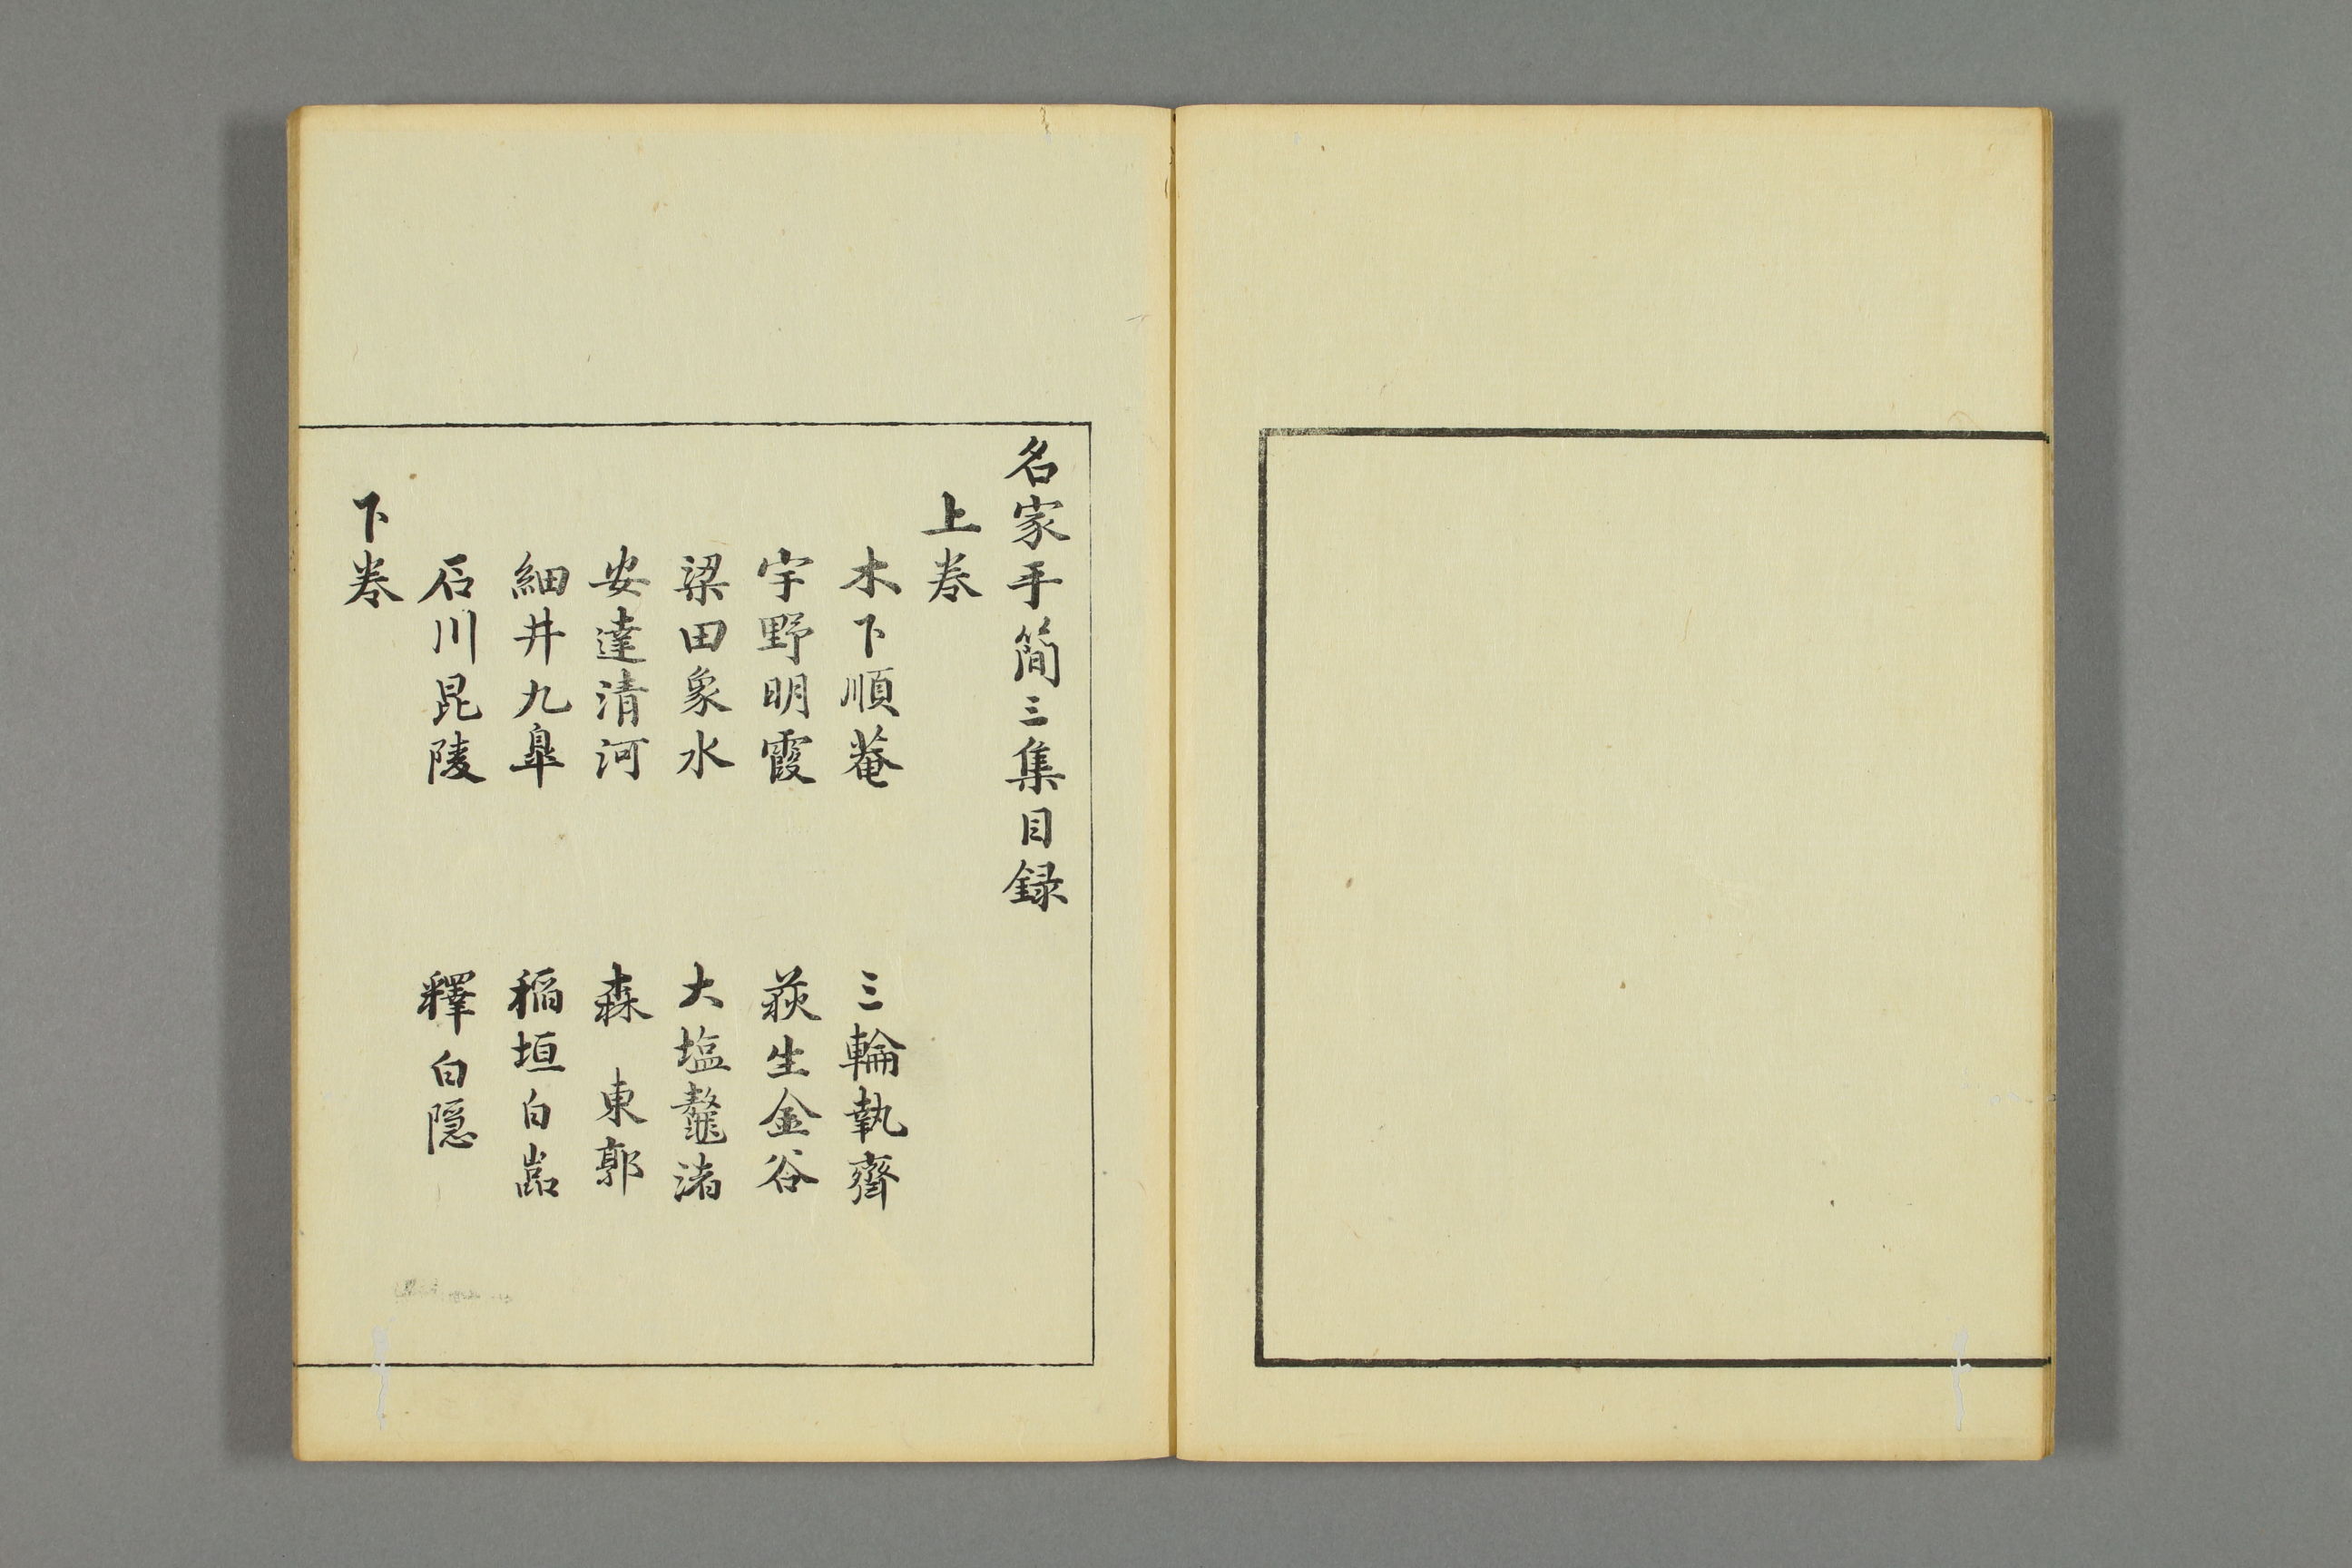 名家手簡三集目録
上巻
木下順菴　三輪執齋
宇野明霞　荻生金谷
梁田象水　大塩鼇渚
安達清河　森　東郭
細井九皐　稲垣白嵓
石川昆陵　釋白隠
下巻